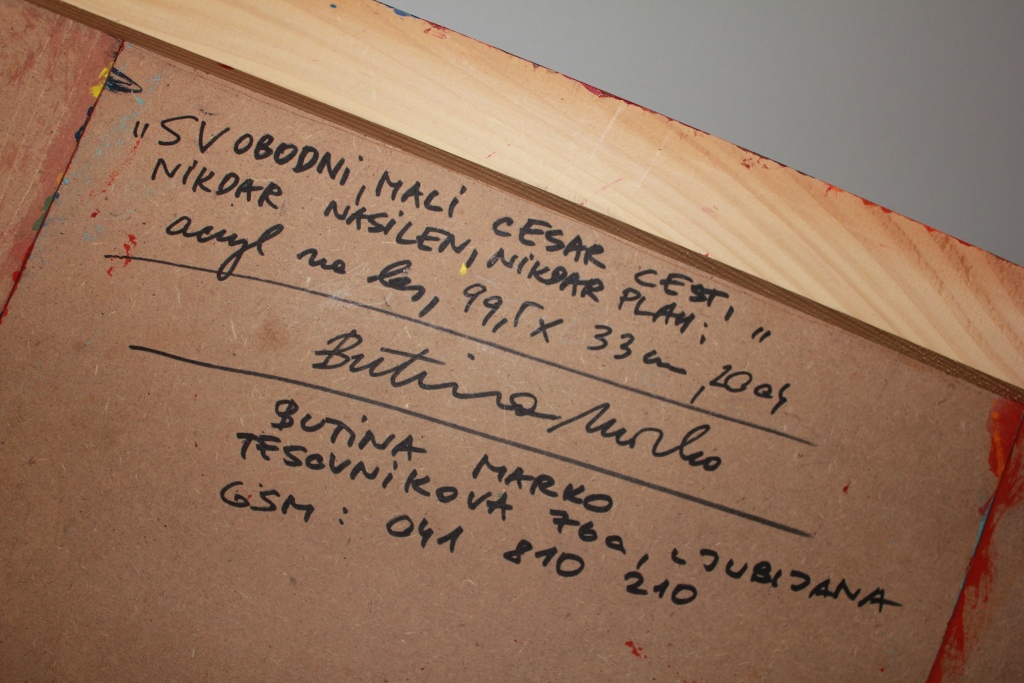 "SVOBODNI, MALI CESAR CEST,
NIKDAR NASILEN, NIKDAR PLAH: "
acryl na les, 99,5 x 33 cm, 2004
Butina Marko
BUTINA MARKO
TESOVNIKOVA 76a, LJUBLJANA
GSM: 041 810 210